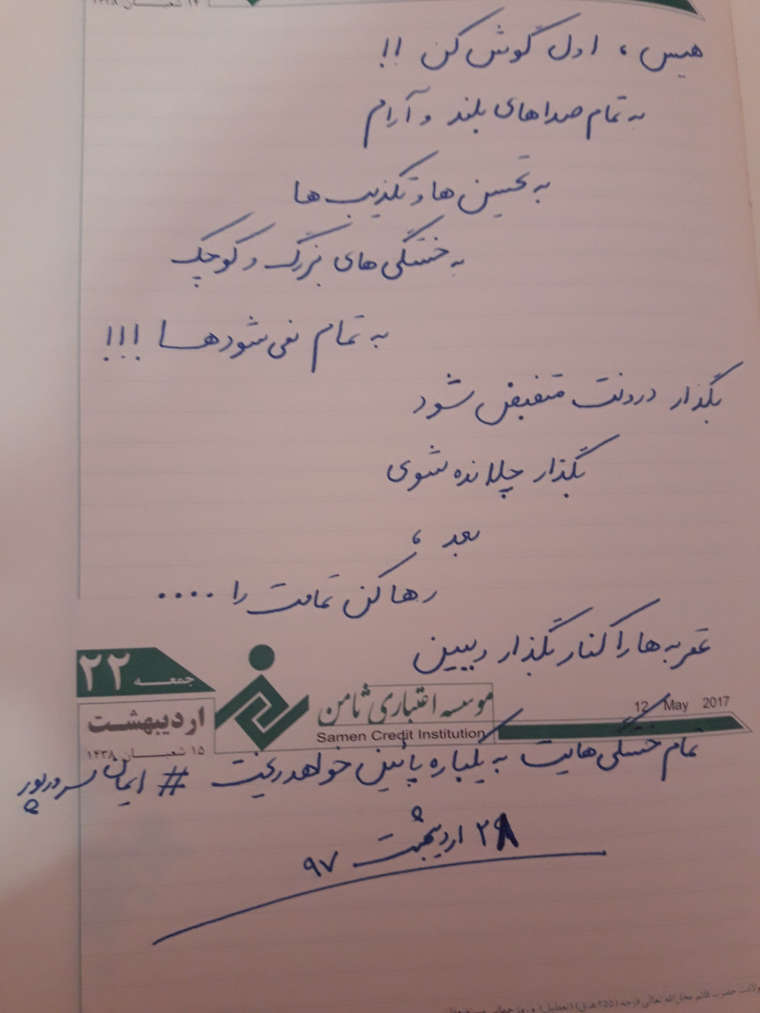 هیس ، اول گوش کن !!
به تمام صداهای بلند و آرام
به تحسین ها و تکذیب ها
به خستگی های بزرگ و کوچک
به تمام نمی شودها !!!
بگذار درونت منقبض شود
بگذار چلانده شوی
بعد ،
رها کن تمامت را ....
عقربه ها را کنار بگذار و ببین
جمعه ۲۲
اردیبهشت
۱۵ شعبان ۱۴۳۸
موسسه اعتباری ثامن
Samen Credit Institution
12 May 2017
تمام خستگی هایت به یکباره پائین خواهد ریخت # ایمان سرورپور
۲۸ اردیبهشت ۹۷